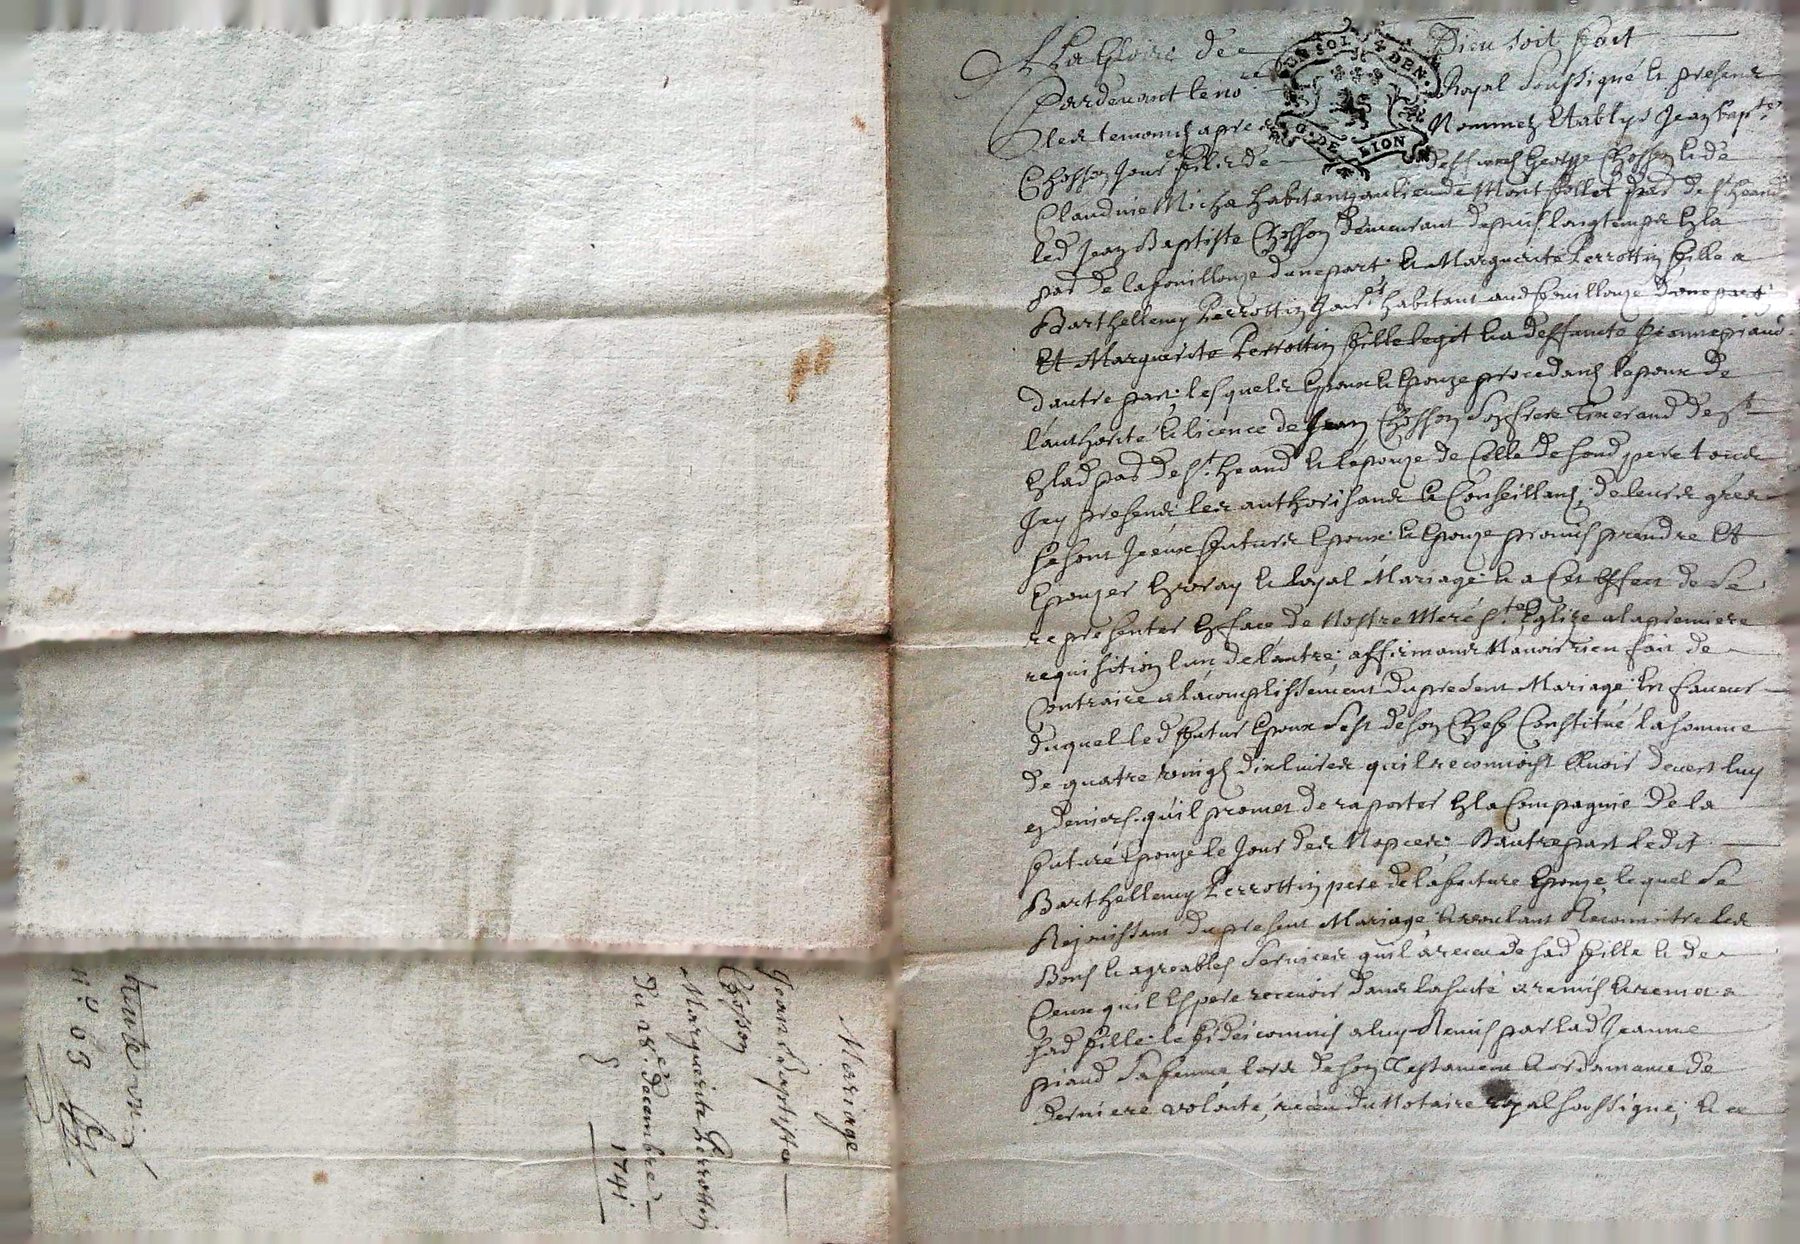 A La Gloire de Dieu soit fait
Pardevant le no.re Royal soussigné & presens
les temoins apres Nommez Etablys Jean bap.te
Chosson Jour filz de deffunct Chosson & de
Claudine habitant au lieu de Mont par de S.t heand
led Jean Baptiste Chosson demeurant depuis longtemps En la
par de lafouillouze dunepart; & Marguerite Perrottin fille a
Barthellemy Perrottin habitant aud fouillouze dune part;
Et Marguerite Perrottin fille legit & a deffuncte Jeanne piaud
dautre part; lesquels Epoux & Epouze procedans lepoux de
lauthorité & licence de Jean Chosson Son frere de S.t
par de S.t heand & lepouze de Celle de sond pere tous
Icy presens les authorisans & Conseillans; de leurs grés
se sont Iceux futurs Epoux & Epouze promis prendre Et
Epouzer En vray & loyal Mariage & a Cet Effect de Se
representer En face de Nostre Mere S.te Eglize a la premiere
requisition lun de lautre; affirmans Navoir rien fait de
Contraire a lacomplissement du present Mariage En faveur
duquel led futur Epoux Sest de son Chef Constitué la somme
de quatre vingt dix livres quil reconnoist Avoir devers luy
en deniers quil promet de raporter En la Compagnie de la
future Epouze le Jour des Nopces; Dautrepart ledit
Barthellemy Perrottin pere de la future Epouze, lequel Se
Rejouissant du present Mariage & voulant Reconnoitre les
Bons & agreables Services quil a receu de sad fille & de
Ceux quil Espere recevoir dans la suite a remis & remet a
sad fille le fideicommis a luy Remis par lad Jeanne
piaud Sa femme lors de son Testament & ordonnance de
derniere volonté, receu du Notaire royal soussigné; & a
Mariage
Jean Baptiste
Chosson
Marguerite Perrottin
du 28.e decembre
1741
n.o 63
UN SOL 4 DEN.
G. DE LION